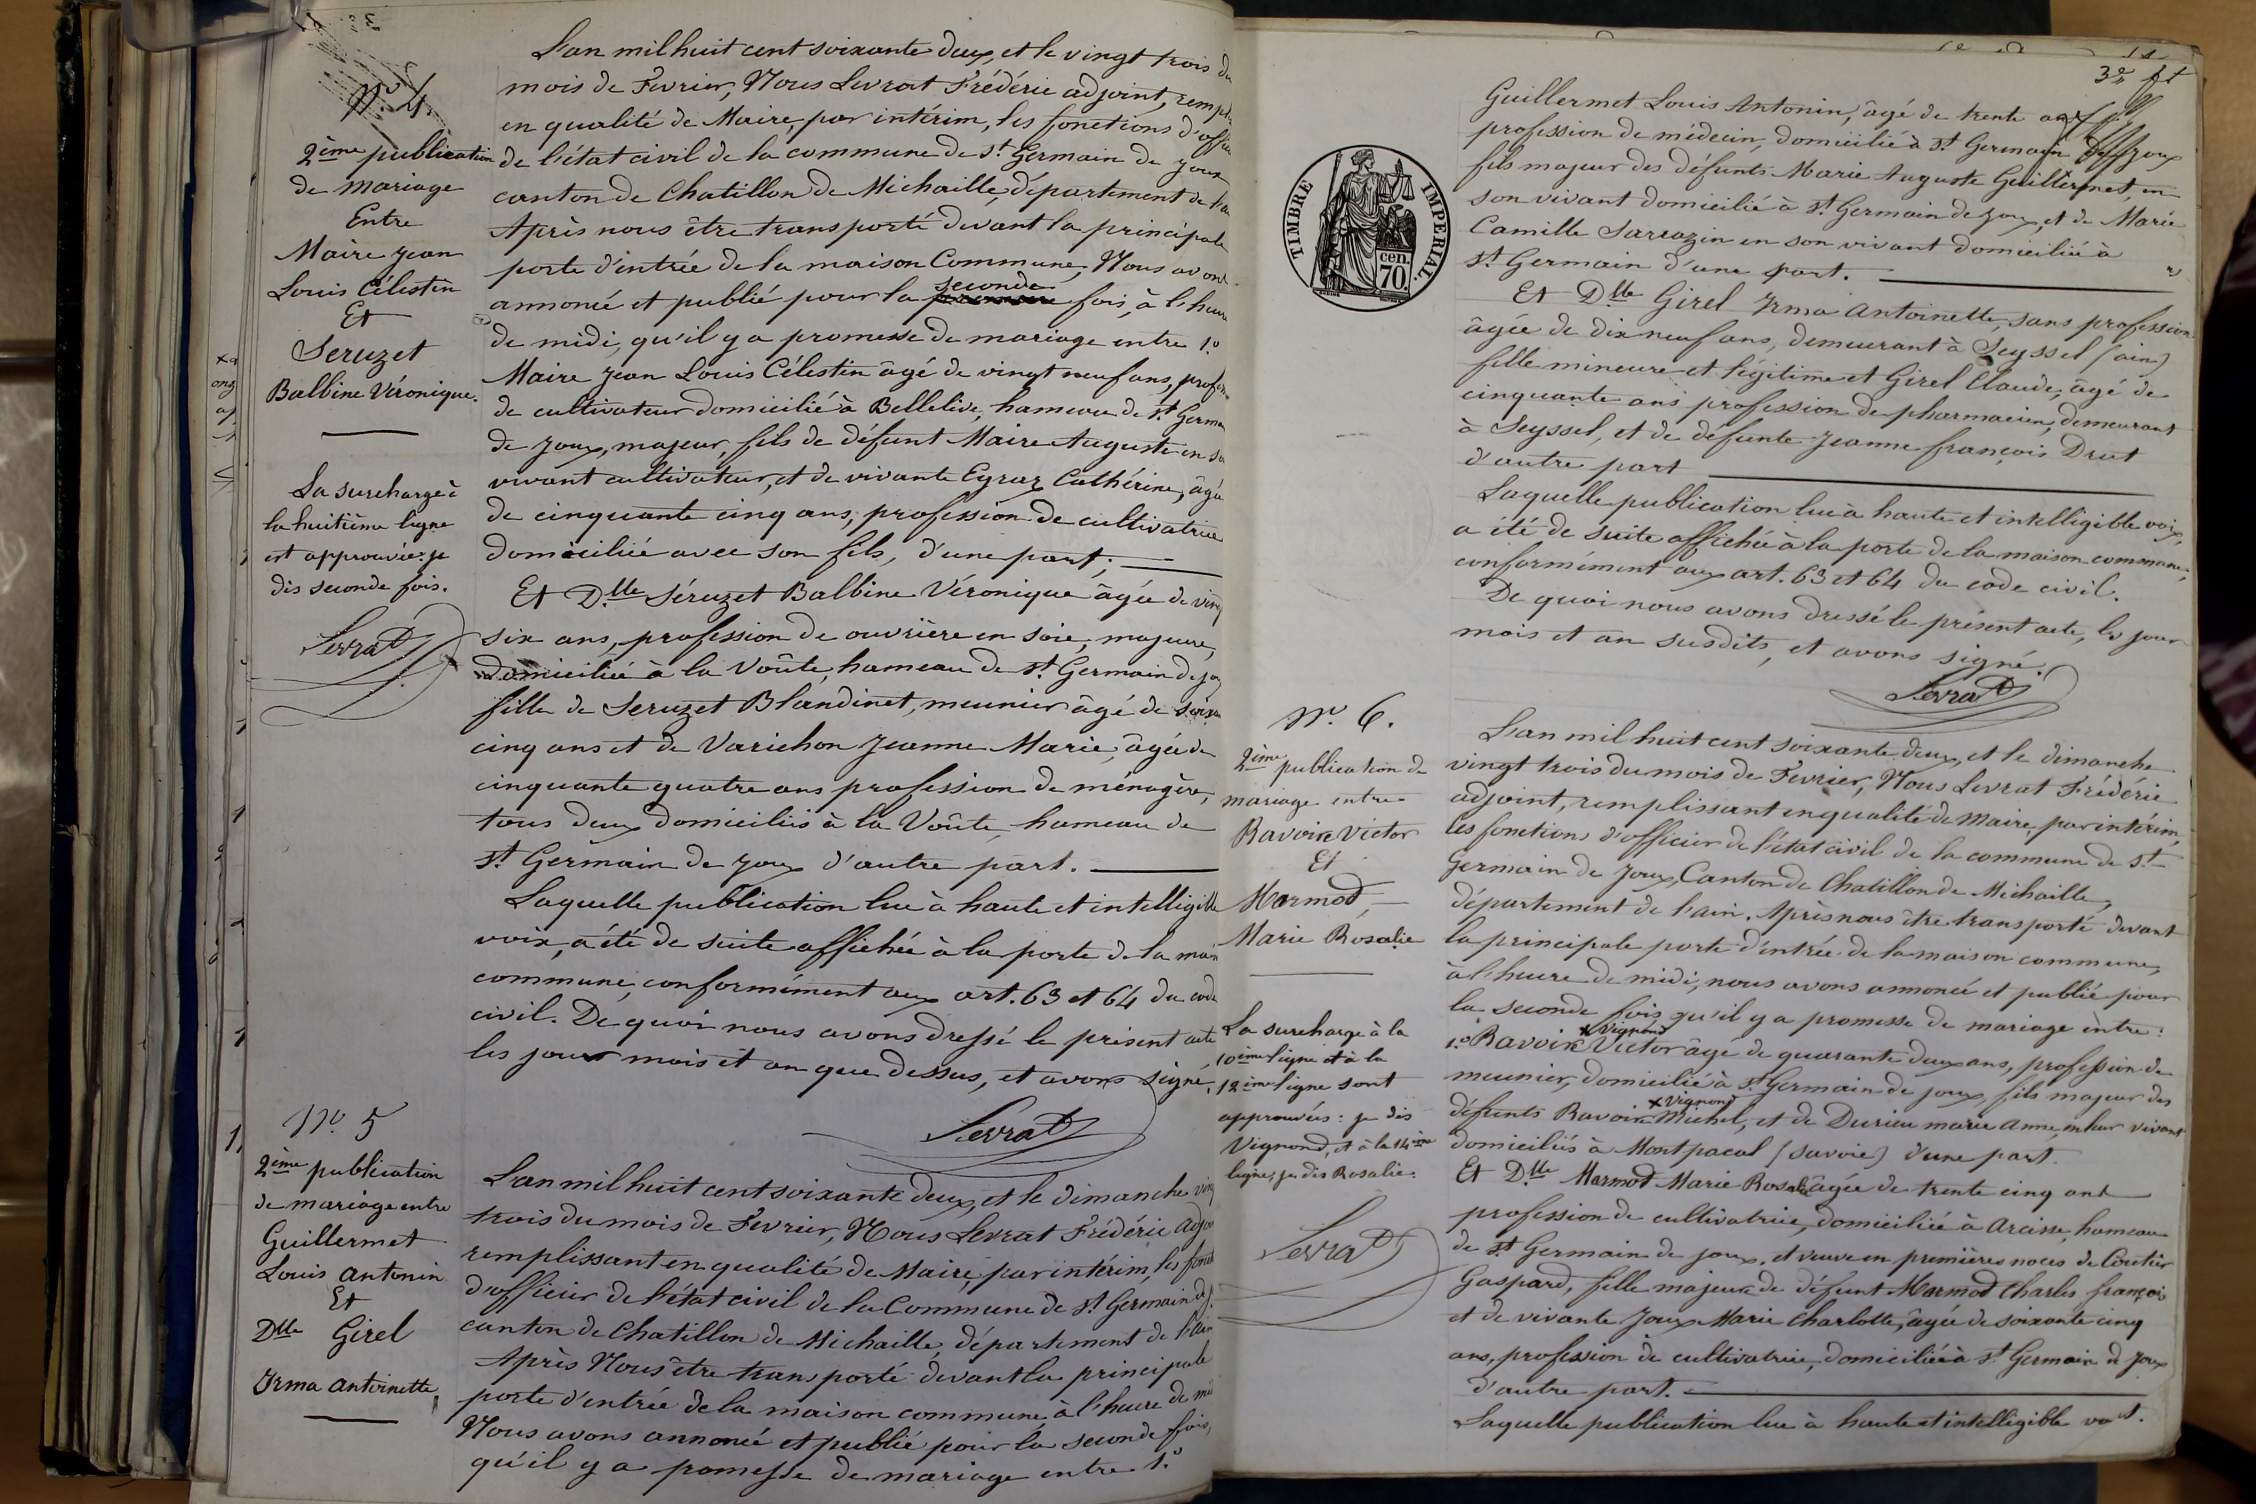 N.º 4.
2ème publication
de mariage
Entre
Maire Jean
Louis Célestin
Et
Seruzet
Balbine Véronique.
La surcharge à
la huitième ligne
est approuvée: je
dis seconde fois.
Levrat
L'an mil huit cent soixante deux, et le vingt trois du
mois de Fevrier, Nous Levrat Frédéric adjoint, rempl
en qualité de Maire, par intérim, les fonctions d'offic
de l'état civil de la commune de St Germain de joux
canton de Chatillon de Michaille, département de l'ai
Après nous être transporté devant la principale
porte d'entrée de la maison Commune, Nous avons
annoncé et publié pour la seconde fois, à l'heure
de midi, qu'il y a promesse de mariage entre 1.º
Maire Jean Louis Célestin âgé de vingt neuf ans, profess
de cultivateur domicilié à Bellelive, hameau de St Germai
de Joux, majeur, fils de défunt Maire Auguste en so
vivant cultivateur, et de vivante Eyraz Cathérine, âgée
de cinquante cinq ans, profession de cultivatrice
domiciliée avec son fils, d'une part;
Et D.lle Séruzet Balbine Véronique âgée de ving
six ans, profession de ouvrière en soie, majeure,
domiciliée à la Voûte, hameau de St Germain de jo
fille de Seruzet Blandinet, meunier âgé de soixan
cinq ans et de Varichon Jeanne Marie, âgée de
cinquante quatre ans profession de ménagère,
tous deux domiciliés à la Voûte, hameau de
St Germain de Joux d'autre part.
Laquelle publication lue à haute et intelligible
voix, a été de suite affichée à la porte de la mais
commune, conformément aux art. 63 et 64 du code
civil. De quoi nous avons dressé le présent acte
les jour mois et an que dessus, et avons signé.
Levrat
N.º 5
2ème publication
de mariage entre
Guillermet
Louis antonin
Et
Dlle Girel
Irma antoinette
L'an mil huit cent soixante deux, et le dimanche ving
trois du mois de Fevrier, Nous Levrat Frédéric Adjoi
remplissant en qualité de Maire, par intérim, les fonct
d'officier de l'état civil de la Commune de St Germain d j.
canton de Chatillon de Michaille, département de l'ain
Après Nous être transporté devant la principale
porte d'entrée de la maison commune, à l'heure de mi
Nous avons annoncé et publié pour la seconde fois,
qu'il y a pomesse de mariage entre 1.º
3e ft
TIMBRE IMPERIAL.
cen.
70.
Guillermet Louis Antonin, âgé de trente ans
profession de médecin, domicilié à St Germain de joux
fils majeur des défunts Marie Auguste Guillermet, en
son vivant domicilié à St Germain de joux, et de Marie
Camille Sarrazin en son vivant domiciliée à
St Germain d'une part.
Et Dlle Girel Irma Antoinette, sans profession
âgée de dix neuf ans, demeurant à Seyssel (ain)
fille mineure et légitime et Girel Claude, âgé de
cinquante ans profession de pharmacien, demeurant
à Seyssel, et de défunte Jeanne françois Drut
d'autre part
Laquelle publication lue à haute et intelligible voix,
a été de suite affichée à la porte de la maison commune,
conformément aux art. 63 et 64 du code civil.
De quoi nous avons dressé le présent acte, les jour
mois et an susdits, et avons signé.
Levrat
N.º 6.
2ème publication de
mariage entre
Ravoire Victor
Et
Marmod,
Marie Rosalie
La surcharge à la
10ème ligne et à la
12ème ligne sont
approuvées: je dis
Vignond, et à la 14ème
ligne, je dis Rosalie.
Levrat
L'an mil huit cent soixante deux, et le dimanche
vingt trois du mois de Fevrier, Nous Levrat Frédéric
adjoint, remplissant en qualité de maire, par intérim,
les fonctions d'officier de l'état civil de la commune de St
Germain de Joux, Canton de Chatillon de Michaille,
département de l'ain. Après nous être transporté devant
la principale porte d'entrée de la maison commune,
à l'heure de midi, nous avons annoncé et publié pour
la seconde fois qu'il y a promesse de mariage entre:
x Vignond
1.º Ravoire Victor âgé de quarante deux ans, profession de
meunier, domicilié à St Germain de joux, fils majeur des
x Vignond
défunts Ravoire Michel, et de Durieu marie anne, en leur vivant
domiciliés à Montpacal (savoie) d'une part.
Et Dlle Marmod Marie Rosalie âgée de trente cinq ans
profession de cultivatrice, domiciliée à Arcisse, hameau
de St Germain de joux, et veuve en premières noces de Coutier
Gaspard, fille majeure de défunt Marmod Charles françois
et de vivante Joux Marie Charlotte, âgée de soixante cinq
ans, profession de cultivatrice, domiciliée à St Germain de Joux
d'autre part.
Laquelle publication lue à haute et intelligible